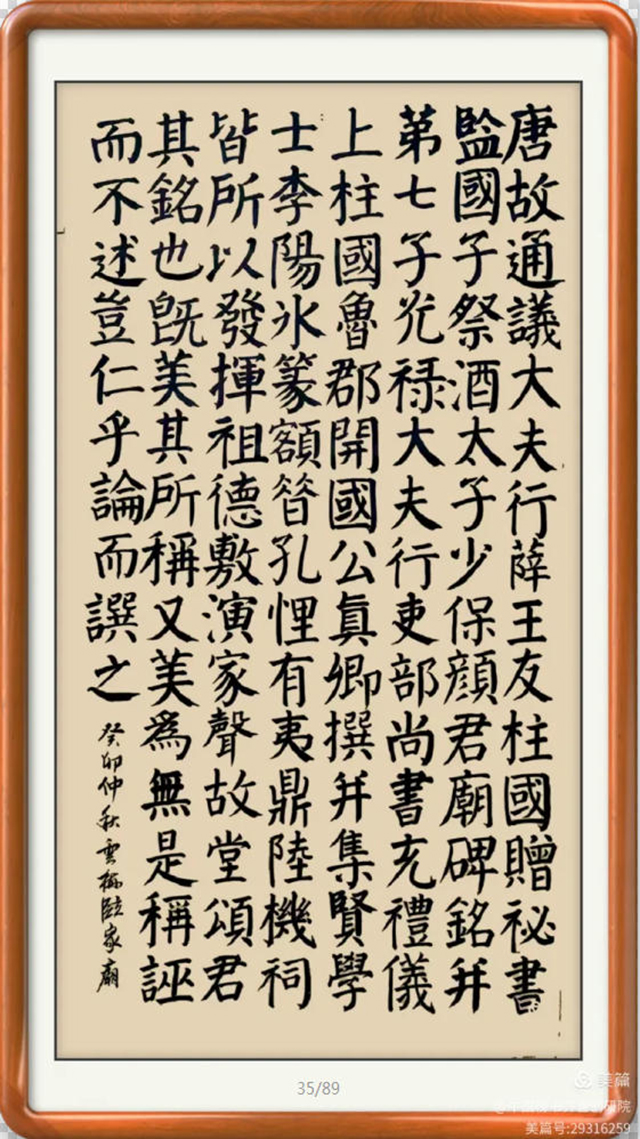 唐故通議大夫行薛王友柱國贈祕書
監國子祭酒太子少保顔君廟碑銘并
第七子光禄大夫行吏部尚書充禮儀
上柱國魯郡開國公真卿撰并集賢學
士李陽氷篆額昔孔悝有夷鼎陸機祠
皆所以發揮祖德敷演家聲故堂頌君
其銘也既美其所稱又美為無是稱誣
而不述豈仁乎論而譔之
癸卯仲秋雲臨家廟
35/89
美篇
美篇号:29316259